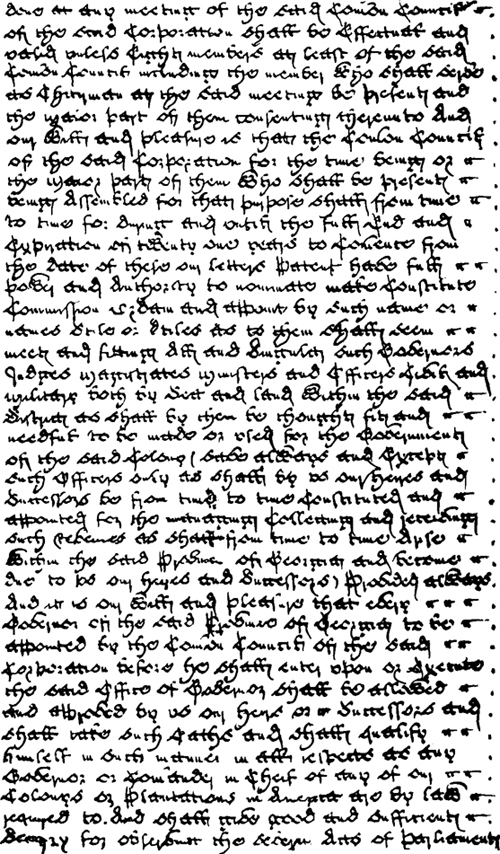 done at any meeting of the said Comon Council
of the said Corporation shall be Effectual and
valid unless Eight members at least of the said
Comon Council including the member who shall serve
as Chairman at the said meeting be present and
the major part of them consenting thereunto And
our Will and pleasure is that the Comon Council
of the said Corporation for the time being or
the major part of them Who shall be present
being Assembled for that purpose shall from time
to time for during and untill the full End and
Expiration of twenty one years to Comence from
the date of these our letters Patent have full
power and Authority to nominate make Constitute
Commission ordain and appoint by such name or
names stile or stiles as to them shall seem
meet and fitting All and singular such Governors
Judges Magistrates Ministers and Officers Civil and
military both by Sea and land Within the said
District as shall by them be thought fit and
needful to be made or used for the Government
of the said Colony (save always and Except
such Officers only as shall by us our heires and
successors be from time to time Constituted and
appointed for the managing Collecting and receiving
such revenues as shall from time to time Arise
Within the said Province of Georgia and become
due to us our heyres and successors) Provided always
And it is our Will and pleasure that every
Governor of the said Province of Georgia to be
appointed by the Comon Council of the said
Corporation before he shall enter upon or Execute
the said Office of Governor shall be allowed
and approved by us our heirs or successors and
shall take such Oaths and shall qualify
himself in such manner in all respects as any
Governor or Comander in Cheif of any of our
Colonys or Plantations in America are by law
required to do And shall give good and sufficient
security for observing the severall Acts of Parliament